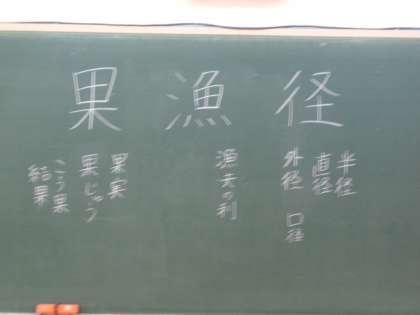 果 漁 径
半径
直径
外径 口径
漁夫の利
果実
果じゅう
こう果
結果